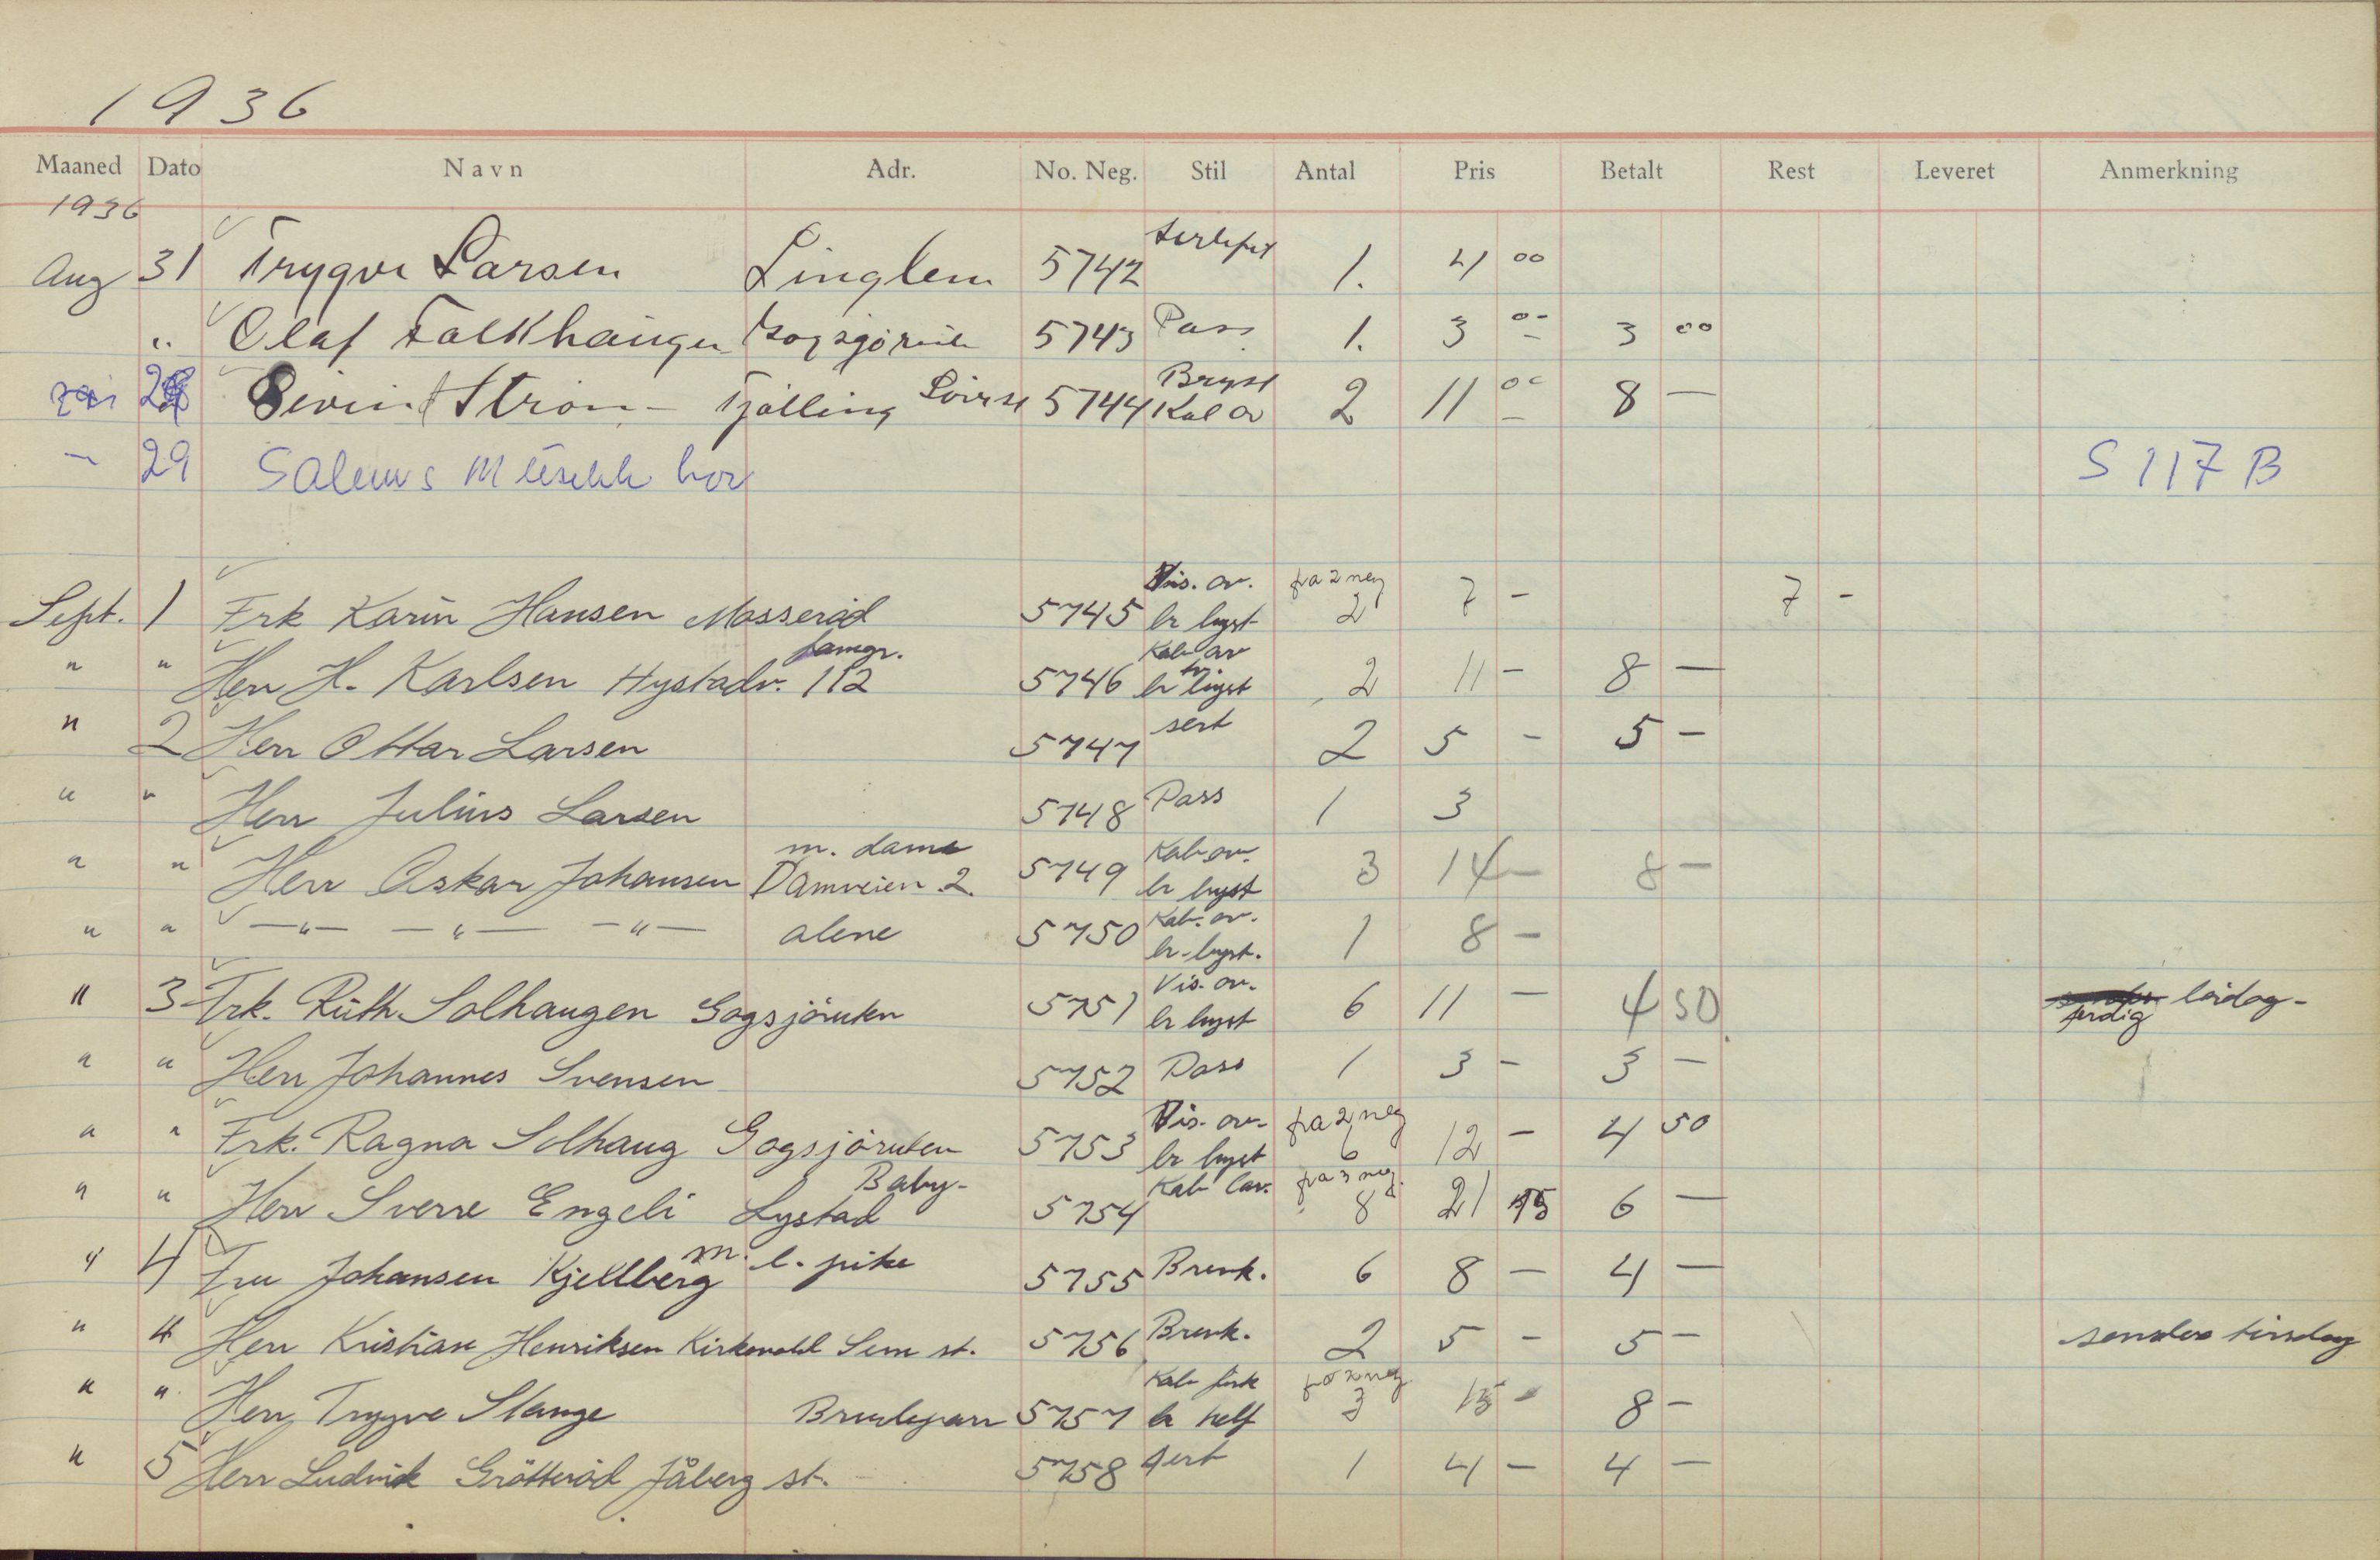 1936
Maaned Dato Navn Adr. No. Neg. Stil Antal Pris Betalt Rest Leveret Anmerkning
1936
Aug 31 Trygve Larsen Linglem 5742 1. 4 00
" Olaf Falkhaugen 5743 Pass 1. 3 00 3 00
Strøm Tjølling 5744 Bryst Kab ov 2 11 00 8 —
— 29 Salems Musikk kor S 117 B
Sept. 1 Frk Karin Hansen Masseröd 5745 Vis. ov. br bryst fra 2 neg 2 7 - 7 -
" " Herr H. Karlsen Hystadv. 112 famgr. 5746 Kab ov br bryst 2 11 - 8 —
" 2 Herr Ottar Larsen 5747 sert 2 5 - 5 -
" " Herr Julius Larsen 5748 Pass 1 3
" " Herr Oskar Johansen m. dame Damveien 2. 5749 Kab ov. br bryst 3 14 — 8 —
" " —"— —"— —"— alene 5750 Kab. ov. br. bryst. 1 8 -
" 3 Frk. Ruth Solhaugen Gogsjöruten 5751 Vis. ov. br bryst 6 11 — 4 50 ferdig lördag -
" " Herr Johannes Svensen 5752 Pass 1 3 - 3 —
" " Frk. Ragna Solhaug Gogsjöruten 5753 Vis. ov. br bryst fra 2 neg 6 12 - 4 50
" " Herr Sverre Engeli Lystad Baby- 5754 Kab fra 3 neg. 8 21 6 —
" 4 Fru Johansen Kjellberg m. l. pike 5755 Brevk. 6 8 — 4 —
" 4 Herr Kristian Henriksen Sem st. 5756 Brevk. 2 5 - 5 — sendes tirsdag
" " Herr Trygve Stange Brudepar 5757 Kab br helf fra 2 neg. 3 8 -
" 5 Herr Ludvik Grötteröd Jåberg st. 5758 sert 1 4 — 4 —